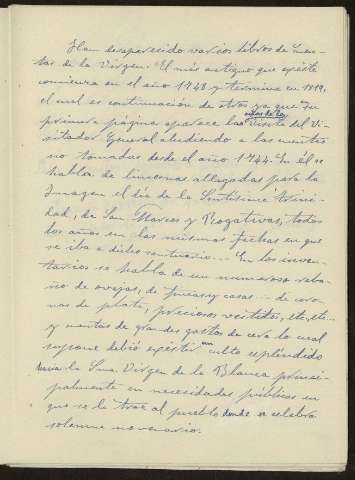 Han desaparecido varios libros de cuen-
tas de la Virgen. El más antiguo que existe
comienza en el año 1748 y termina en 1819,
el cual es continuación de otros ya que en
primera página aparece la Visita del Vi-
sitador General aludiendo a las cuentas
no tomadas desde el año 1744. En él se
habla de limosnas allegadas para la
Imagen el día de la Santísima Trini-
dad, de San Marcos y Rogativas, todos
los años en las mismas fechas en que
se iba a dicho santuario... En los inven-
tarios se habla de un numeroso reba-
ño de ovejas, de fincas y casas... de coro-
nas de plata, preciosos vestidos, etc, etc
y cuentas de grandes gastos de cera lo cual
supone debió existir un culto espléndido
hacia la Sma. Virgen de la Blanca princi-
palmente en necesidades públicas en
que se la trae al pueblo donde se celebra
solemne novenario.